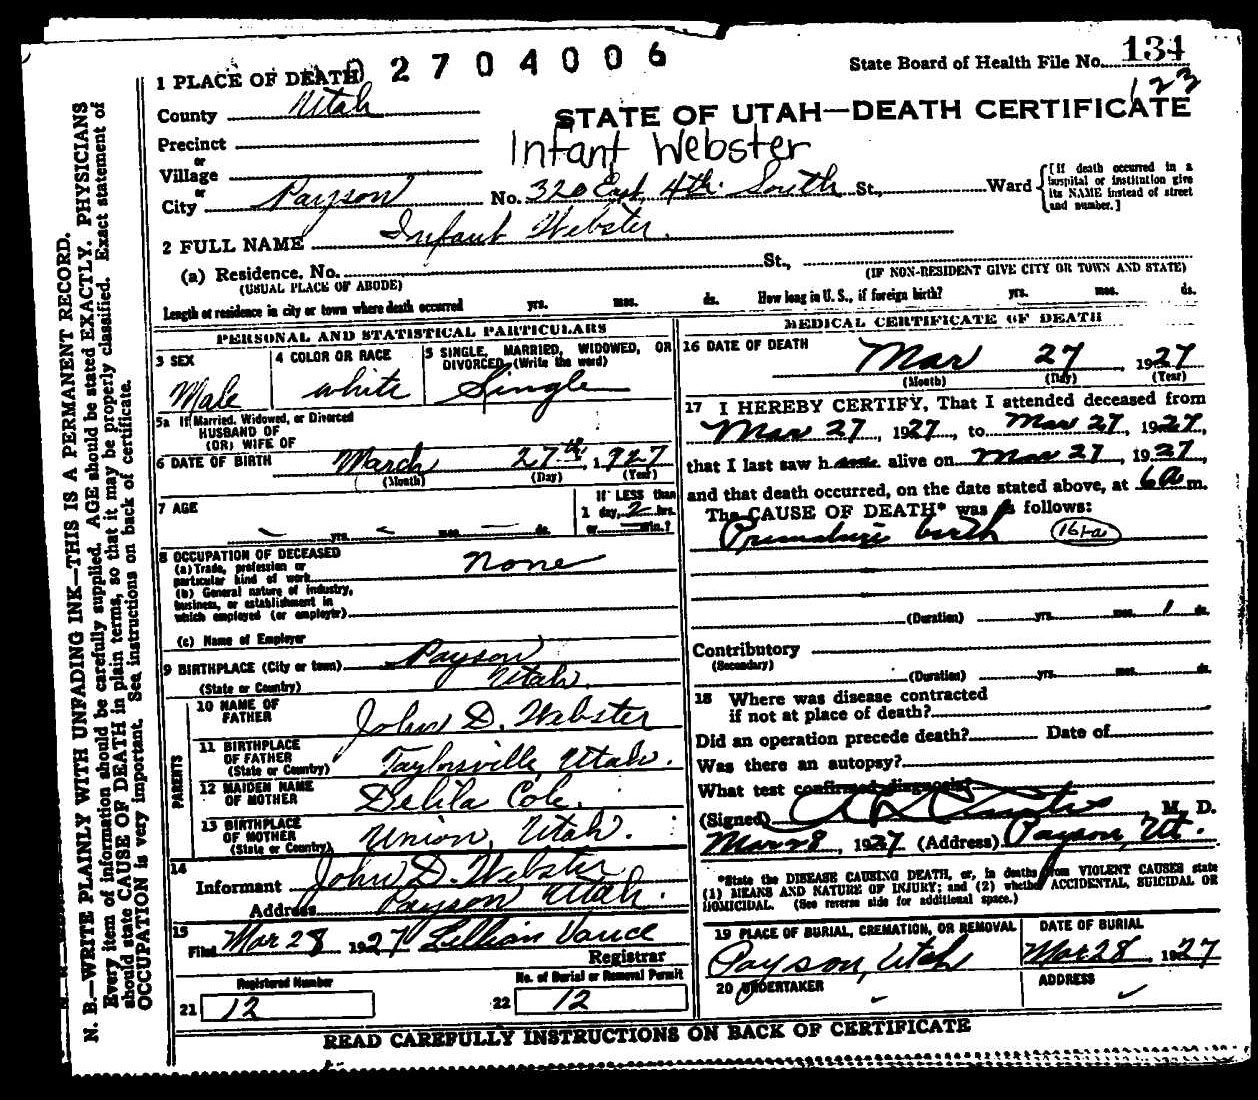 2704006
State Board of Health File No. 134
123
1 PLACE OF DEATH
County Utah
STATE OF UTAH—DEATH CERTIFICATE
Precinct
Infant Webster
or
Village
or
City Payson No. 320 East 4th. South St., Ward
[If death occurred in a hospital or institution give its NAME instead of street and number.]
2 FULL NAME Infant Webster.
(a) Residence, No. St.,
(USUAL PLACE OF ABODE) (IF NON-RESIDENT GIVE CITY OR TOWN AND STATE)
Length of residence in city or town where death occurred yrs. mos. ds. How long in U. S., if foreign birth? yrs. mos. ds.
PERSONAL AND STATISTICAL PARTICULARS
3 SEX
Male
4 COLOR OR RACE
White
5 SINGLE, MARRIED, WIDOWED, OR DIVORCED (Write the word)
Single
5a If Married, Widowed, or Divorced
HUSBAND OF
(OR) WIFE OF
6 DATE OF BIRTH March 27th, 1927
(Month) (Day) (Year)
7 AGE
yrs. mos. ds.
If LESS than
1 day, 2 hrs.
or min.?
8 OCCUPATION OF DECEASED
(a) Trade, profession or
particular kind of work
None
(b) General nature of industry,
business, or establishment in
which employed (or employer)
(c) Name of Employer
9 BIRTHPLACE (City or town) Payson
(State or Country) Utah.
PARENTS
10 NAME OF
FATHER John D. Webster
11 BIRTHPLACE
OF FATHER
(State or Country) Taylorsville, Utah.
12 MAIDEN NAME
OF MOTHER Delila Cole.
13 BIRTHPLACE
OF MOTHER
(State or Country) Union, Utah.
14
Informant John D. Webster
Address Payson Utah.
15
Filed Mar 28 1927 Lillian Vance
Registrar
Registered Number
21 12
No. of Burial or Removal Permit
22 12
MEDICAL CERTIFICATE OF DEATH
16 DATE OF DEATH
Mar 27, 1927
(Month) (Day) (Year)
17 I HEREBY CERTIFY, That I attended deceased from
Mar 27, 1927, to Mar 27, 1927,
that I last saw h alive on Mar 27, 1927,
and that death occurred, on the date stated above, at 6a m.
The CAUSE OF DEATH* was as follows:
Premature birth 161-a
(Duration) yrs. mos. 1 ds.
Contributory
(Secondary)
(Duration) yrs. mos. ds.
18 Where was disease contracted
if not at place of death?
Did an operation precede death? Date of
Was there an autopsy?
What test confirmed diagnosis?
(Signed) M. D.
Mar 28, 1927 (Address) Payson, Ut.
*State the DISEASE CAUSING DEATH, or, in deaths from VIOLENT CAUSES state
(1) MEANS AND NATURE OF INJURY; and (2) whether ACCIDENTAL, SUICIDAL OR
HOMICIDAL. (See reverse side for additional space.)
19 PLACE OF BURIAL, CREMATION, OR REMOVAL
Payson, Utah
DATE OF BURIAL
Mar 28, 1927
20 UNDERTAKER
ADDRESS
READ CAREFULLY INSTRUCTIONS ON BACK OF CERTIFICATE
N. B.—WRITE PLAINLY WITH UNFADING INK—THIS IS A PERMANENT RECORD.
Every item of information should be carefully supplied. AGE should be stated EXACTLY. PHYSICIANS
should state CAUSE OF DEATH in plain terms, so that it may be properly classified. Exact statement of
OCCUPATION is very important. See instructions on back of certificate.